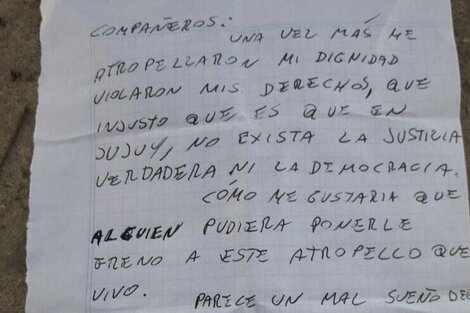 COMPAÑEROS:
UNA VEL MÁS ME
ATROPELLARON MI DIGNIDAD
VIOLARON MIS DERECHOS, QUE
INJUSTO QUE ES QUE EN
JUJUY, NO EXISTA LA JUSTICIA
VERDADERA NI LA DEMOCRACIA.
CÓMO ME GUSTARIA QUE
ALGUIEN PUDIERA PONERLE
FRENO A ESTE ATROPELLO QUE
VIVO. PARECE UN MAL SUEÑO